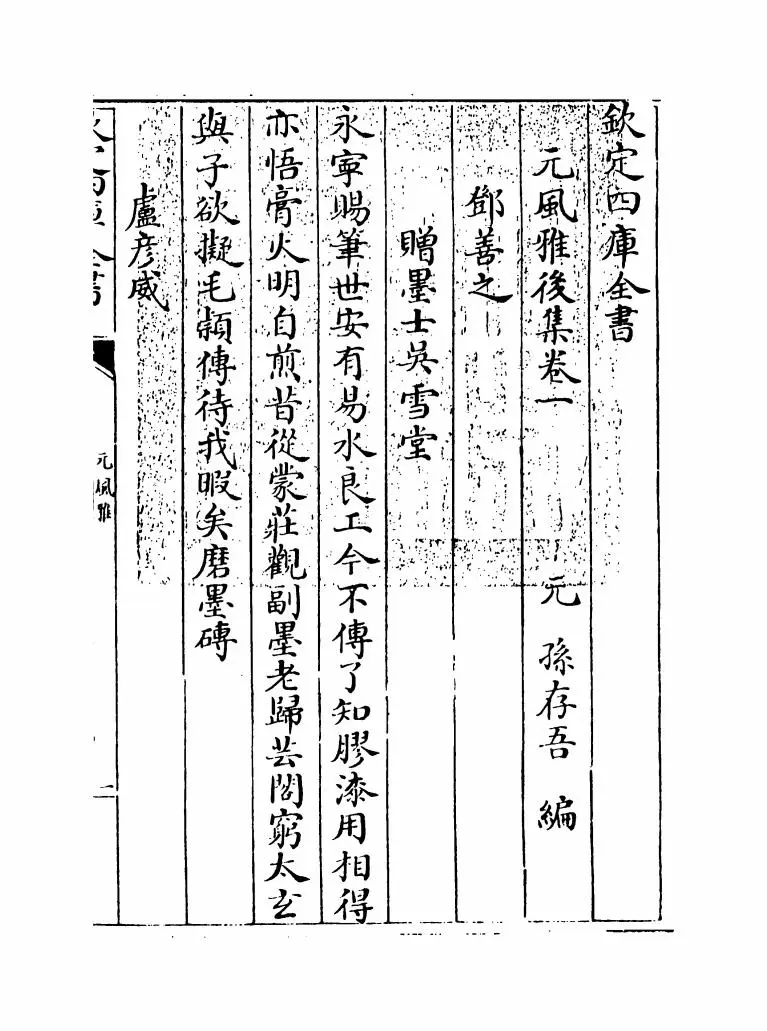 欽定四庫全書
元風雅後集卷一 元 孫存吾 編
鄧善之
贈墨士吳雪堂
永寧賜筆世安有易水良工今不傳了知膠漆用相得
亦悟膏火明自煎昔從蒙莊觀副墨老歸芸閣窮太玄
與子欲擬毛穎傳待我暇矣磨墨磚
盧彥威
元風雅